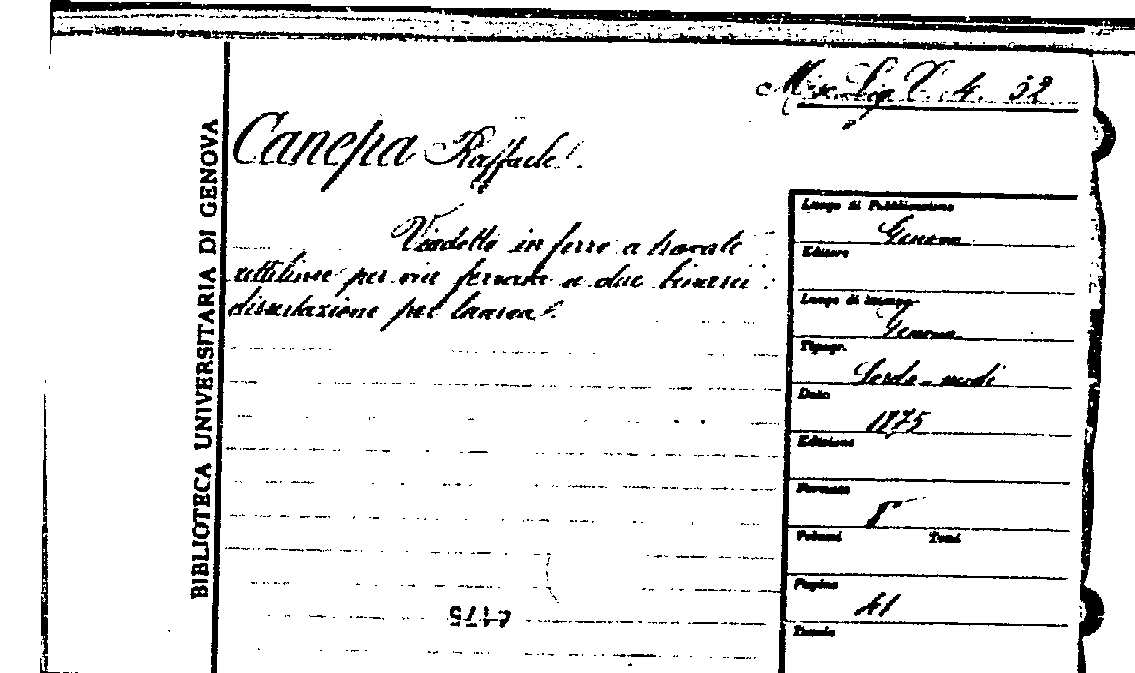 Misc. Lig. C. 4. 32
BIBLIOTECA UNIVERSITARIA DI GENOVA
Canepa Raffaele.
Viadotto in ferro a travate
rettilinee per vie ferrate a due binarii:
dissertazione per laurea.
Luogo di Pubblicazione
Genova
Editore
Luogo di stampa
Genova
Tipogr.
Sordo-muti
Data
1875
Edizione
Formato
8°
Volumi Tomi
Pagine
41
Tavole